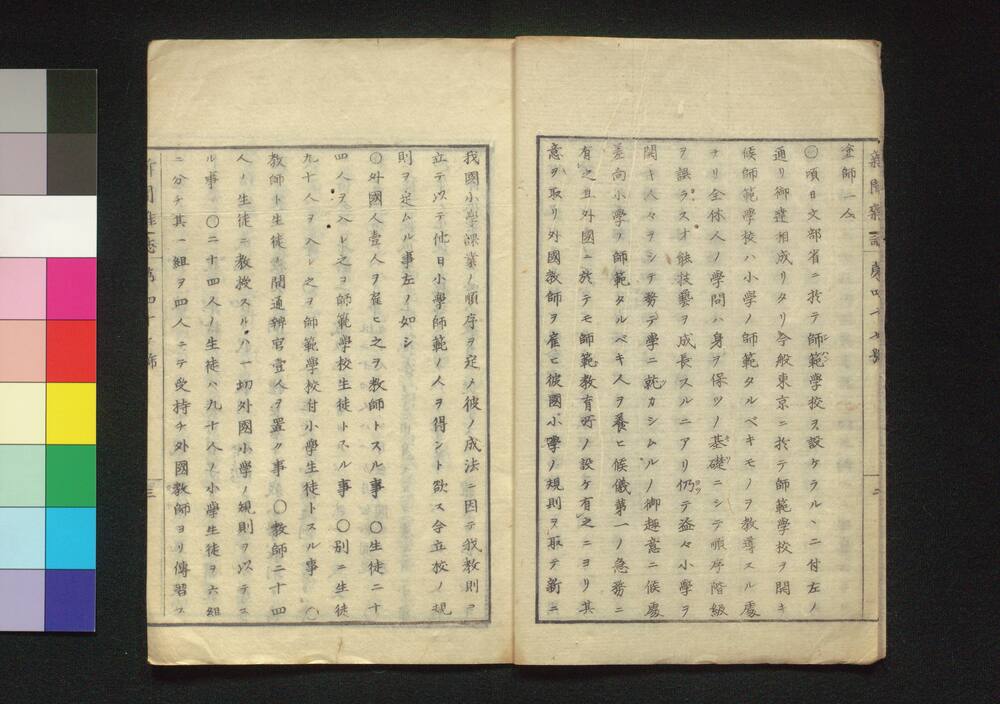 新聞雜誌 第四十七號 二
塗師一人
〇頃日文部省ニ於テ師範學校ヲ設ケラルヽニ付左ノ
通リ御達相成リタリ今般東京ニ於テ師範學校ヲ開キ
候師範學校ハ小學ノ師範タルベキモノヲ教導スル處
ナリ全体人ノ學問ハ身ヲ保ツノ基礎ニシテ順序階級
ヲ誤ラス才能技藝ヲ成長スルニアリ仍テ益々小學ヲ
開キ人々ヲシテ務テ學ニ就カシムルノ御趣意ニ候處
差向小學ノ師範タルベキ人ヲ養ヒ候儀第一ノ急務ニ
有之且外國ニ於テモ師範教育所ノ設ケ有之ニヨリ其
意ヲ取リ外國教師ヲ雇ヒ彼國小學ノ規則ヲ取テ新ニ
我國小學課業ノ順序ヲ定メ彼ノ成法ニ因テ我教則ヲ
立テ以テ他日小學師範ノ人ヲ得ント欲ス今立校ノ規
則ヲ定ムル事左ノ如シ
〇外國人壹人ヲ雇ヒ之ヲ教師トスル事 〇生徒二十
四人ヲ入レ之ヲ師範學校生徒トスル事 〇別ニ生徒
九十人ヲ入レ之ヲ師範學校付小學生徒トスル事 〇
教師ト生徒ノ間通辨官壹人ヲ置ク事 〇教師二十四
人ノ生徒ニ教授スルハ一切外國小學ノ規則ヲ以テス
ル事 〇二十四人ノ生徒ハ九十人ノ小學生徒ヲ六組
ニ分チ其一組ヲ四人ニテ受持チ外國教師ヨリ傳習ス
三